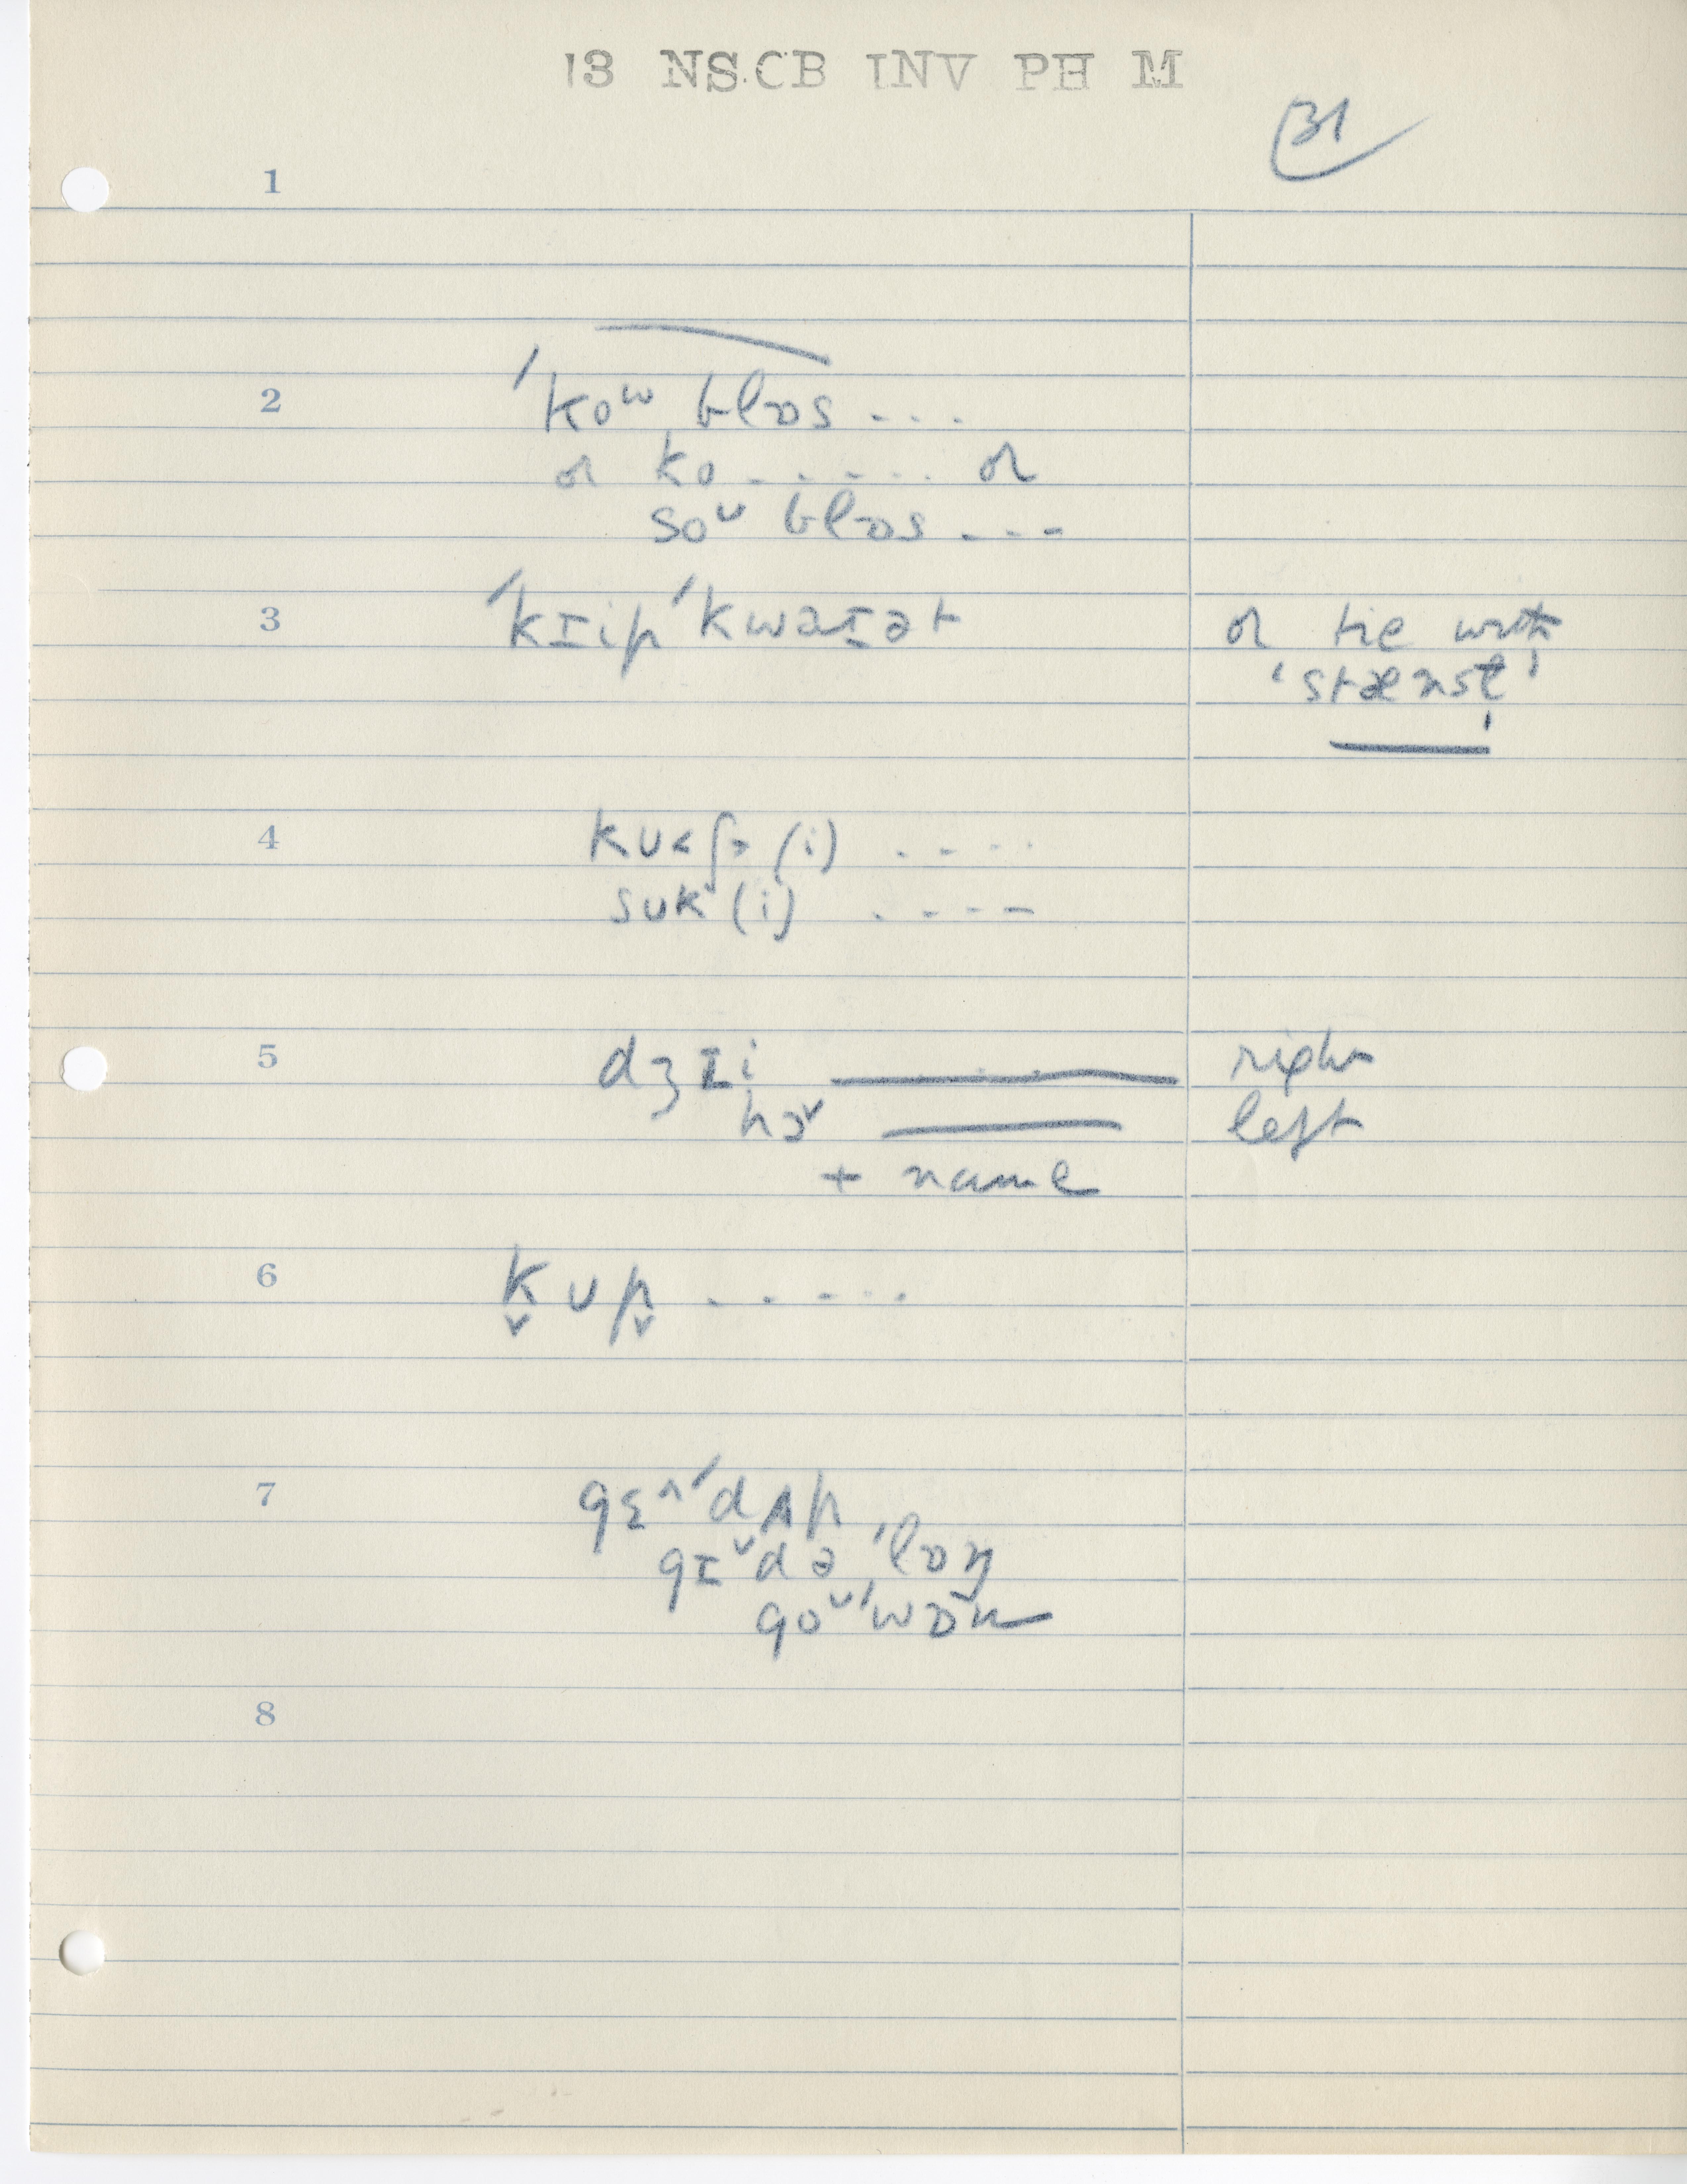 13 NS.CB INV PH M
31
1
2 ˈkoʷ blɒs ...
or ko ...... or
soᵛ blɒs ---
3 ˈkɪip ˈkwaɪət or tie with
'stænsɫ'
4 kʊ<ʃ> (i) ....
sʊk (i) ----
5 dʒɪi ——— right
hɔᵛ ——— left
+ name
6 k̬ʊp̬ .....
7 gɛ^ˈdʌp
gɪᵛdəˈlɒŋ
goᵛˈwɒn
8